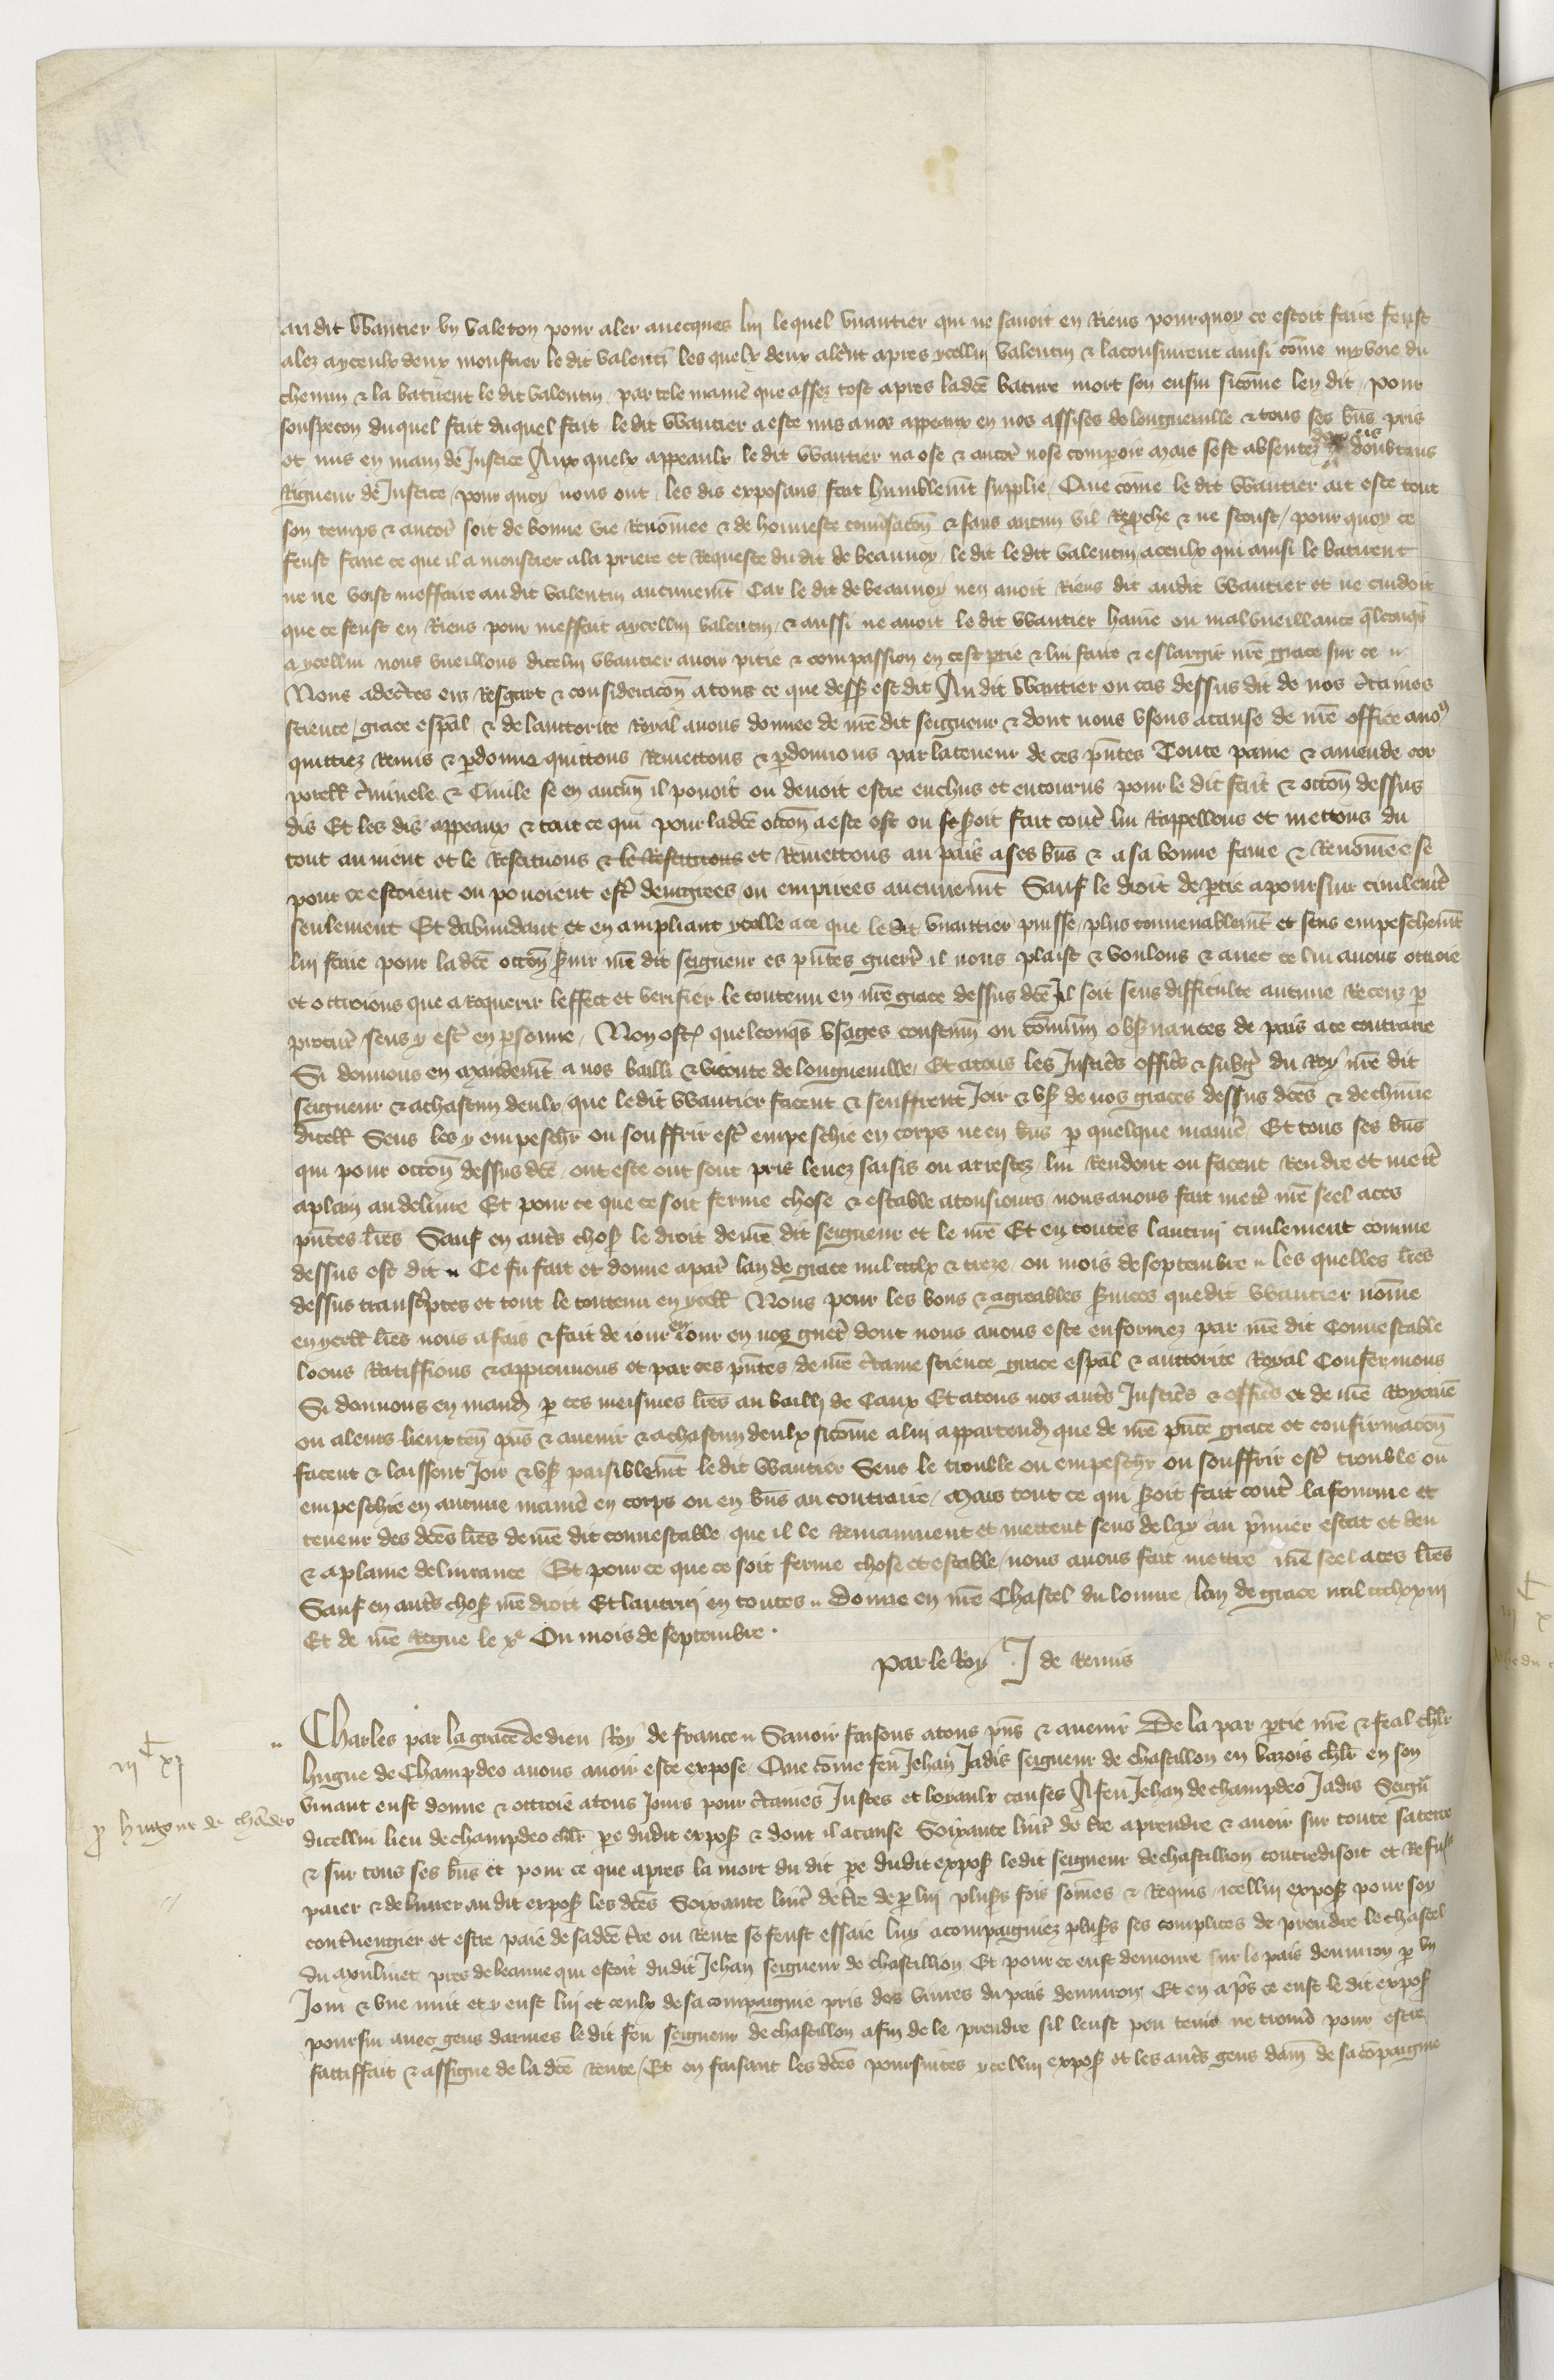 au dit Wautier un valeton pour aler avecques lui lequel Wautier qui ne savoit en riens pourquoy ce estoit faire feust
alez a yceulx deux monstrer le dit Valentin les quelx deux alerent apres ycellui Valentin & laconsuirent ainsi come my voie du
chemin & la batirent le dit Valentin par tele maniere que assez tost apres ladce bature mort sen ensui sicome len dit pour
souspecon duquel fait duquel fait le dit Wautier a este mis a nos appeaux en nos assises de longueville & tous ses biens pris
et mis en main de Justice Aux quelx appeaulx le dit Wautier na ose & encor nose comparoir mais sest absentez doubtans
rigueur de Justice pour quoy nous ont les dis exposans fait humblemt supplie Que come le dit Wautier ait este tout
son temps & encor soit de bonne vie renomee & de honneste conversacion & sans aucun vil reproche & ne sceust pour quoy ce
feust faire ce que il a monstrer a la priere et requeste du dit de beaunoy le dit le dit Valentin a ceulx qui ainsi le batirent
ne ne volst meffaire au dit Valentin aucunemt Car le dit de beaunoy nen avoit riens dit audit Wautier et ne cuidoit
que ce feust en riens pour meffait a ycellui Valentin & aussi ne avoit le dit Wautier haine ou malvueillance qlconque
a ycellui nous vueillons dicelui Wautier avoir pitie & compassion en cest ptie & lui faire & eslargir nre grace sur ce
Nous adecertes eu resgart & consideracion a tous ce que dess est dit Au dit Wautier ou cas dessus dit de nos certaines
science grace espal & de lauctorite royal a nous donnee de mon dit seigneur & dont nous usons a cause de nre office avons
quittiez remis & pdonne quittons remettons & pdonnons par la teneur de ces pntes Toute paine & amende cor
porelle criminele & civile se en aucun il povoit ou devoit estre encheus et encourus pour le dit fait & occon dessus
dis Et les dis appeaux & tout ce qui pour ladce occon a este est ou seroit fait contre lui rappellons et mettons du
tout au nient et le restituons & le restituons et remettons au pais a ses biens & a sa bonne fame & renomee se
pour ce estoient ou povoient estre denigrees ou empirees aucunemt Sauf le droit de ptie a poursuir civilemt
seulement Et dabundant et en ampliant ycelle a ce que le dit Wautier puisse plus convenablemt et sens empeschemt
lui faire pour ladce occon servir mon dit seigneur es pntes guerres il nous plaist & voulons & avec ce lui avons ottroie
et ottroions que a requerir leffect et verifier le contenu en nre grace dessus dce il soit sens difficulte aucune receuz p
procur sens y estre en psonne Non ost quelconqs usages coustum ou comun observances de pais a ce contraire
Si donnons en mandemt a nos bailli & viconte de longueville Et a tous les Justiciers officiers & subgiez du Roy mon dit
seigneur & a chascun deulx que le dit Wautier facent & seuffrent Joir & user de nos graces dessus dces & de chune
dicelles Sens les y empescher ou souffrir estre empeschie en corps ne en biens p quelque maniere Et tous ses biens
qui pour occon dessus dce ont este ont sont pris levez saisis ou arrestez lui rendent ou facent rendre et mettre
a plain au delivre Et pour ce que ce soit ferme chose & estable a tousiours nous avons fait mettre nre seel a ces
pntes lres Sauf en autres choses le droit de mon dit seigneur et le nre Et en toutes lautrui civilement comme
dessus est dit Ce fu fait et donne a paris lan de grace mil ccclx & treze ou mois de septembre les quelles lres
dessus transcriptes et tout le contenu en ycelles Nous pour les bons & agreables services que dit Wautier nomme
en ycelles lres nous a fais & fait de iour en iour en nos guerres dont nous avons este enformez par nre dit Connestable
loons ratiffions & approuvons et par ces pntes de nre certaine science grace espal & auctorite royal Confermons
Si donnons en mandemt p ces meismes lres au bailli de Caux Et a tous nos autres Justiciers & officiers et de nre royaume
ou a leurs lieuxten pns & avenir & a chascun deulx sicome a lui appartendra que de nre pnte grace et confirmacion
facent & laissent Joir & user paisiblemt le dit Wautier Sens le trouble ou empescher ou souffrir estre trouble ou
empeschie en aucune maniere en corps ou en biens au contraire Mais tout ce qui seroit fait contre la fourme et
teneur des dces lres de nre dit connestable que il le ramainnent et mettent sens delay au premier estat et deu
& a plaine delivrance Et pour ce que ce soit ferme chose et estable nous avons fait mettre nre seel a ces lres
Sauf en autres choses nre droit Et lautrui en toutes Donne en nre Chastel du louvre lan de grace mil ccclxxiii
Et de nre regne le xe Ou mois de septembre
Par le Roy J de Remis
Charles par la grace de dieu Roy de france Savoir faisons a tous pns & avenir De la par ptie nre & feal chlr
iii c xi
hugue de Champdeo avons avoir este expose Que come feu Jehan Jadis seigneur de chastillon en bazois chlr en son
vivant eust donne & ottroie a tous Jours pour certaines Justes et loyaulx causes A feu Jehan de champdeo Jadis Seigr
p hugone de chandeo
dicellui lieu de champdeo chlr pe dudit expos & dont il a cause Soixante livres de tre a prendre & avoir sur toute sa terre
& sur tous ses biens et pour ce que apres la mort du dit pe dudit expos le dit seigneur de chastillion contredisoit et refus
paier & delivrer au dit expos les dces Soixante livres de tre de p lui plusrs fois somes & requis icellui expos pour soy
contrevengier et estre paie de sadce tre ou rente se feust essaie luy acompaigniez plusrs ses complices de prendre le chastel
du mulinet pres de beaune qui estoit dudit Jehan seigneur de chastillion Et pour ce eust demoure sur le pais denviron p un
Jour & une nuit et y eust lui et ceulx de sa compaignie pris des vivres du pais denviron Et en aprs ce eust le dit expos
poursui avec gens darmes le dit feu seigneur de chastillon afin de le prendre sil leust peu tenir ne trouver pour estre
sattiffait & assigne de la dce rente Et en faisant les dces poursuites ycellui expos et les autres gens darm de sa compaignie